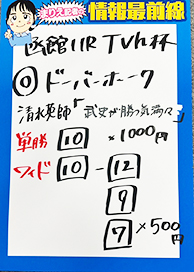 情報最前線
函館11R TVh杯
⑩ ドーバーホーク
清水英師「武史が勝つ気満々」
単勝 10 × 1000円
ワイド 10 - 12
9
7 × 500円